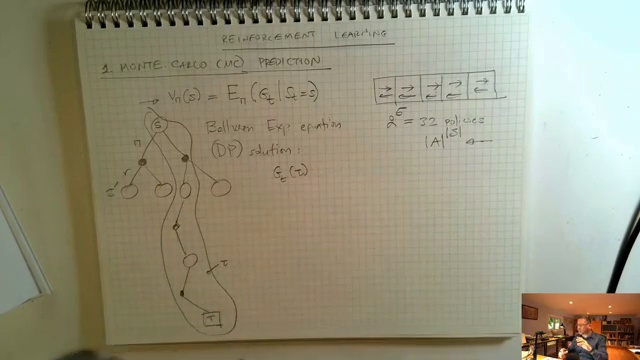 REINFORCEMENT LEARNING
1. MONTE-CARLO (MC) PREDICTION
→ Vπ(s) = Eπ(Gt | St = s)
Bellman Exp. equation
(DP) solution:
Gt(τ)
2^5 = 32 policies
|A|^|S| ←
S
π
r
s'
τ
T